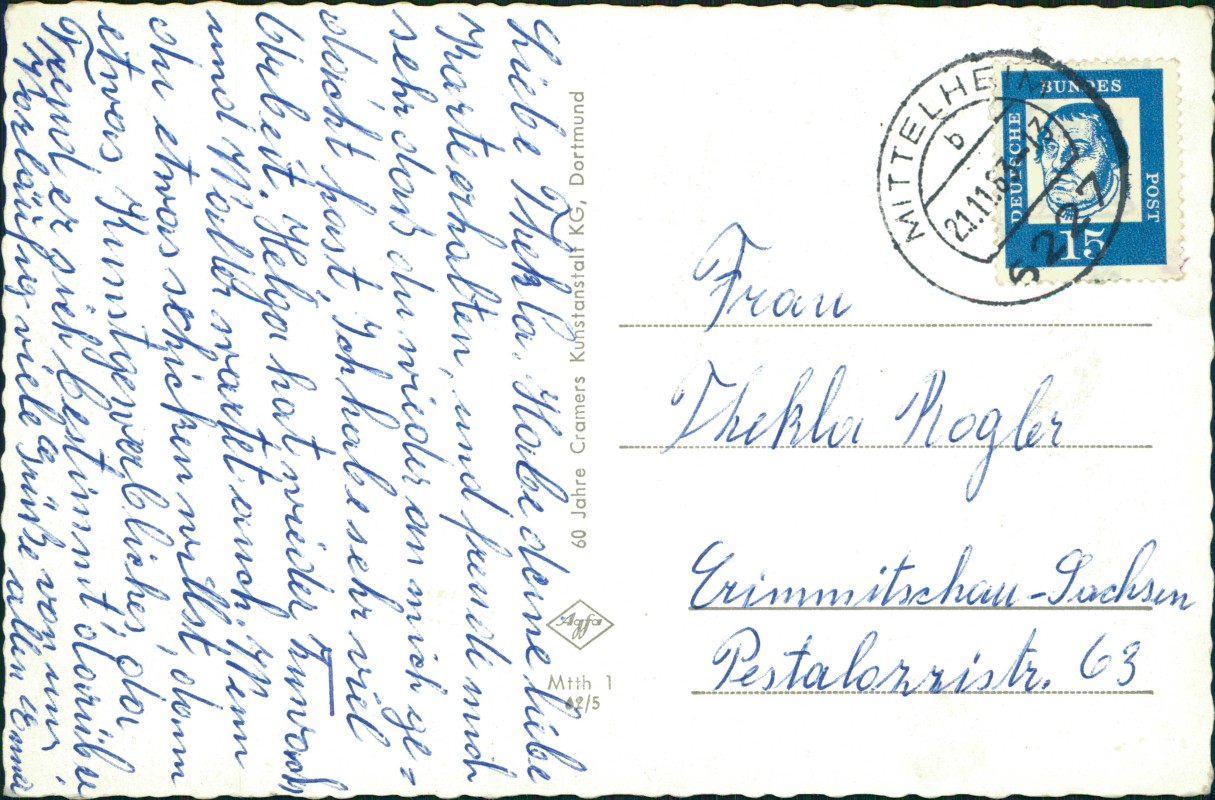 Liebe Thekla. Habe deine liebe
Karte erhalten, und freude mich
sehr das du wieder an mich ge-
dacht hast, Ich habe sehr viel
Arbeit. Helga hat wieder
und Walter wartet auch. Wenn
du etwas schicken willst, dann
etwas Kunstgewerbliches, da
freud er sich bestimmt darüber
Vorläufig viele Grüße von uns
allen
60 Jahre Cramers Kunstanstalt KG, Dortmund
Agfa
Mtth 1
62/5
MITTELHEIM
b
21.11.63-13
5227
DEUTSCHE BUNDES POST
15
Frau
Thekla Rogler
Crimmitschau-Sachsen
Pestalozzistr. 63